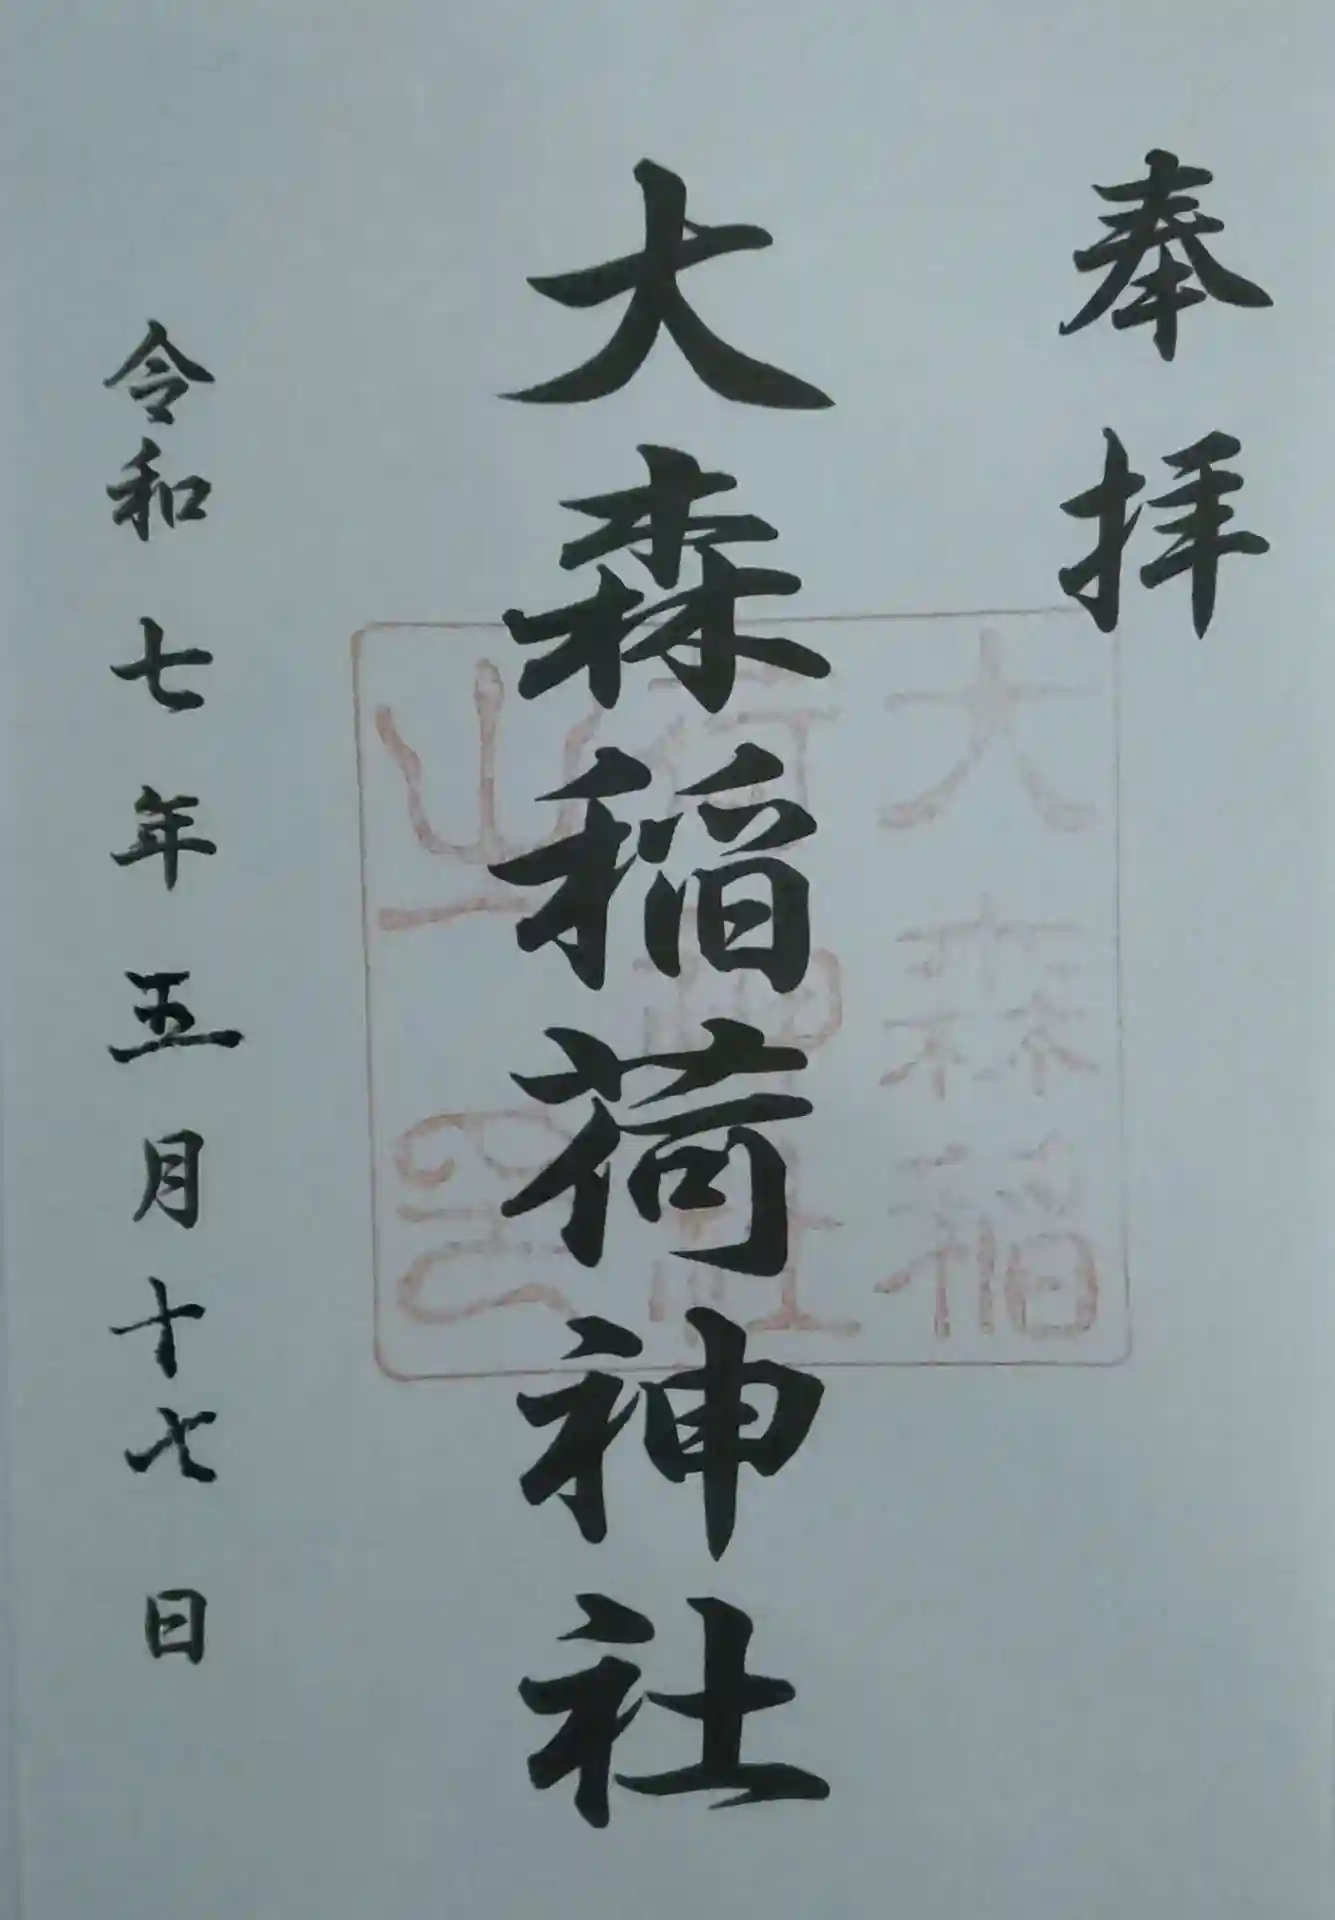 奉拝
大森稲荷神社
大森稲
荷神社
之印
令和七年五月十七日